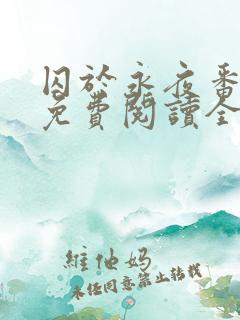 囚於永夜番
免費閱讀全
維他媽
未经同意禁止转载